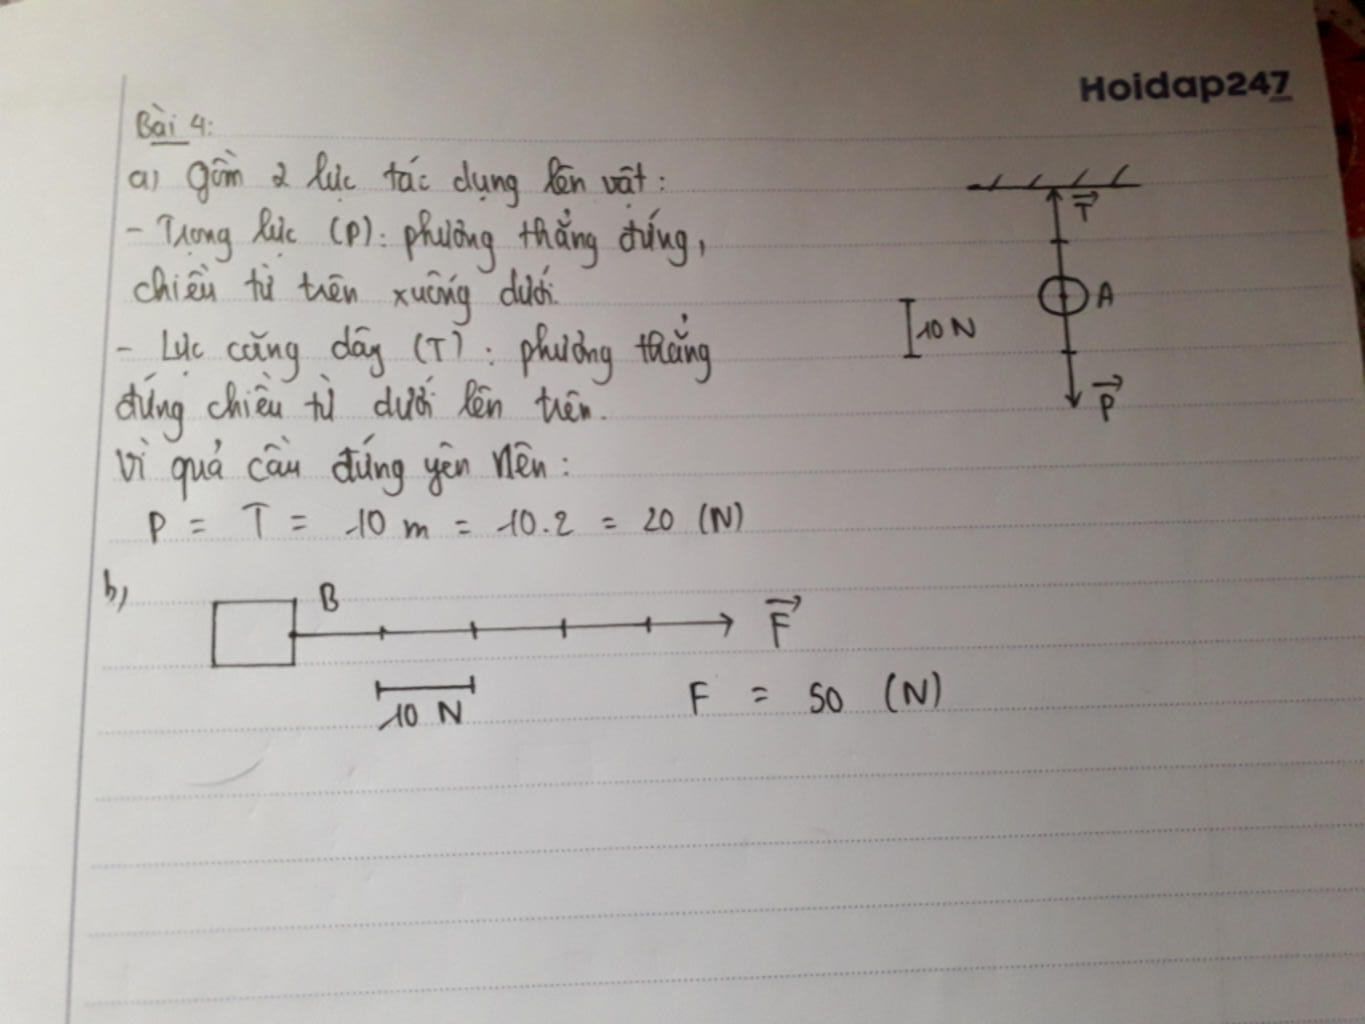 Hoidap247
Bài 4:
a) Gồm 2 lực tác dụng lên vật:
- Trọng lực (P): phương thẳng đứng,
chiều từ trên xuống dưới.
- Lực căng dây (T): phương thẳng
đứng chiều từ dưới lên trên.
Vì quả cầu đứng yên nên:
P = T = 10 m = 10.2 = 20 (N)
T⃗
A
10 N
P⃗
b)
B
F⃗
10 N
F = 50 (N)